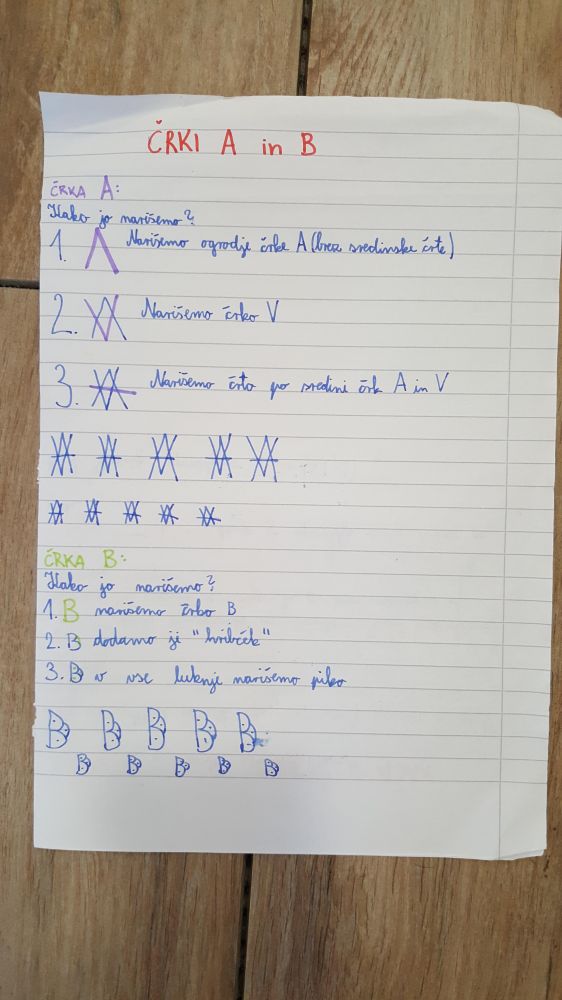 ČRKI A in B
ČRKA A:
Kako jo narišemo?
1. Narišemo ogrodje črke A (brez sredinske črte)
2. Narišemo črko V
3. Narišemo črto po sredini črk A in V
ČRKA B:
Kako jo narišemo?
1. B narišemo črko B
2. B dodamo ji "hribček"
3. B v vse luknje narišemo piko
B B B B B
B B B B B